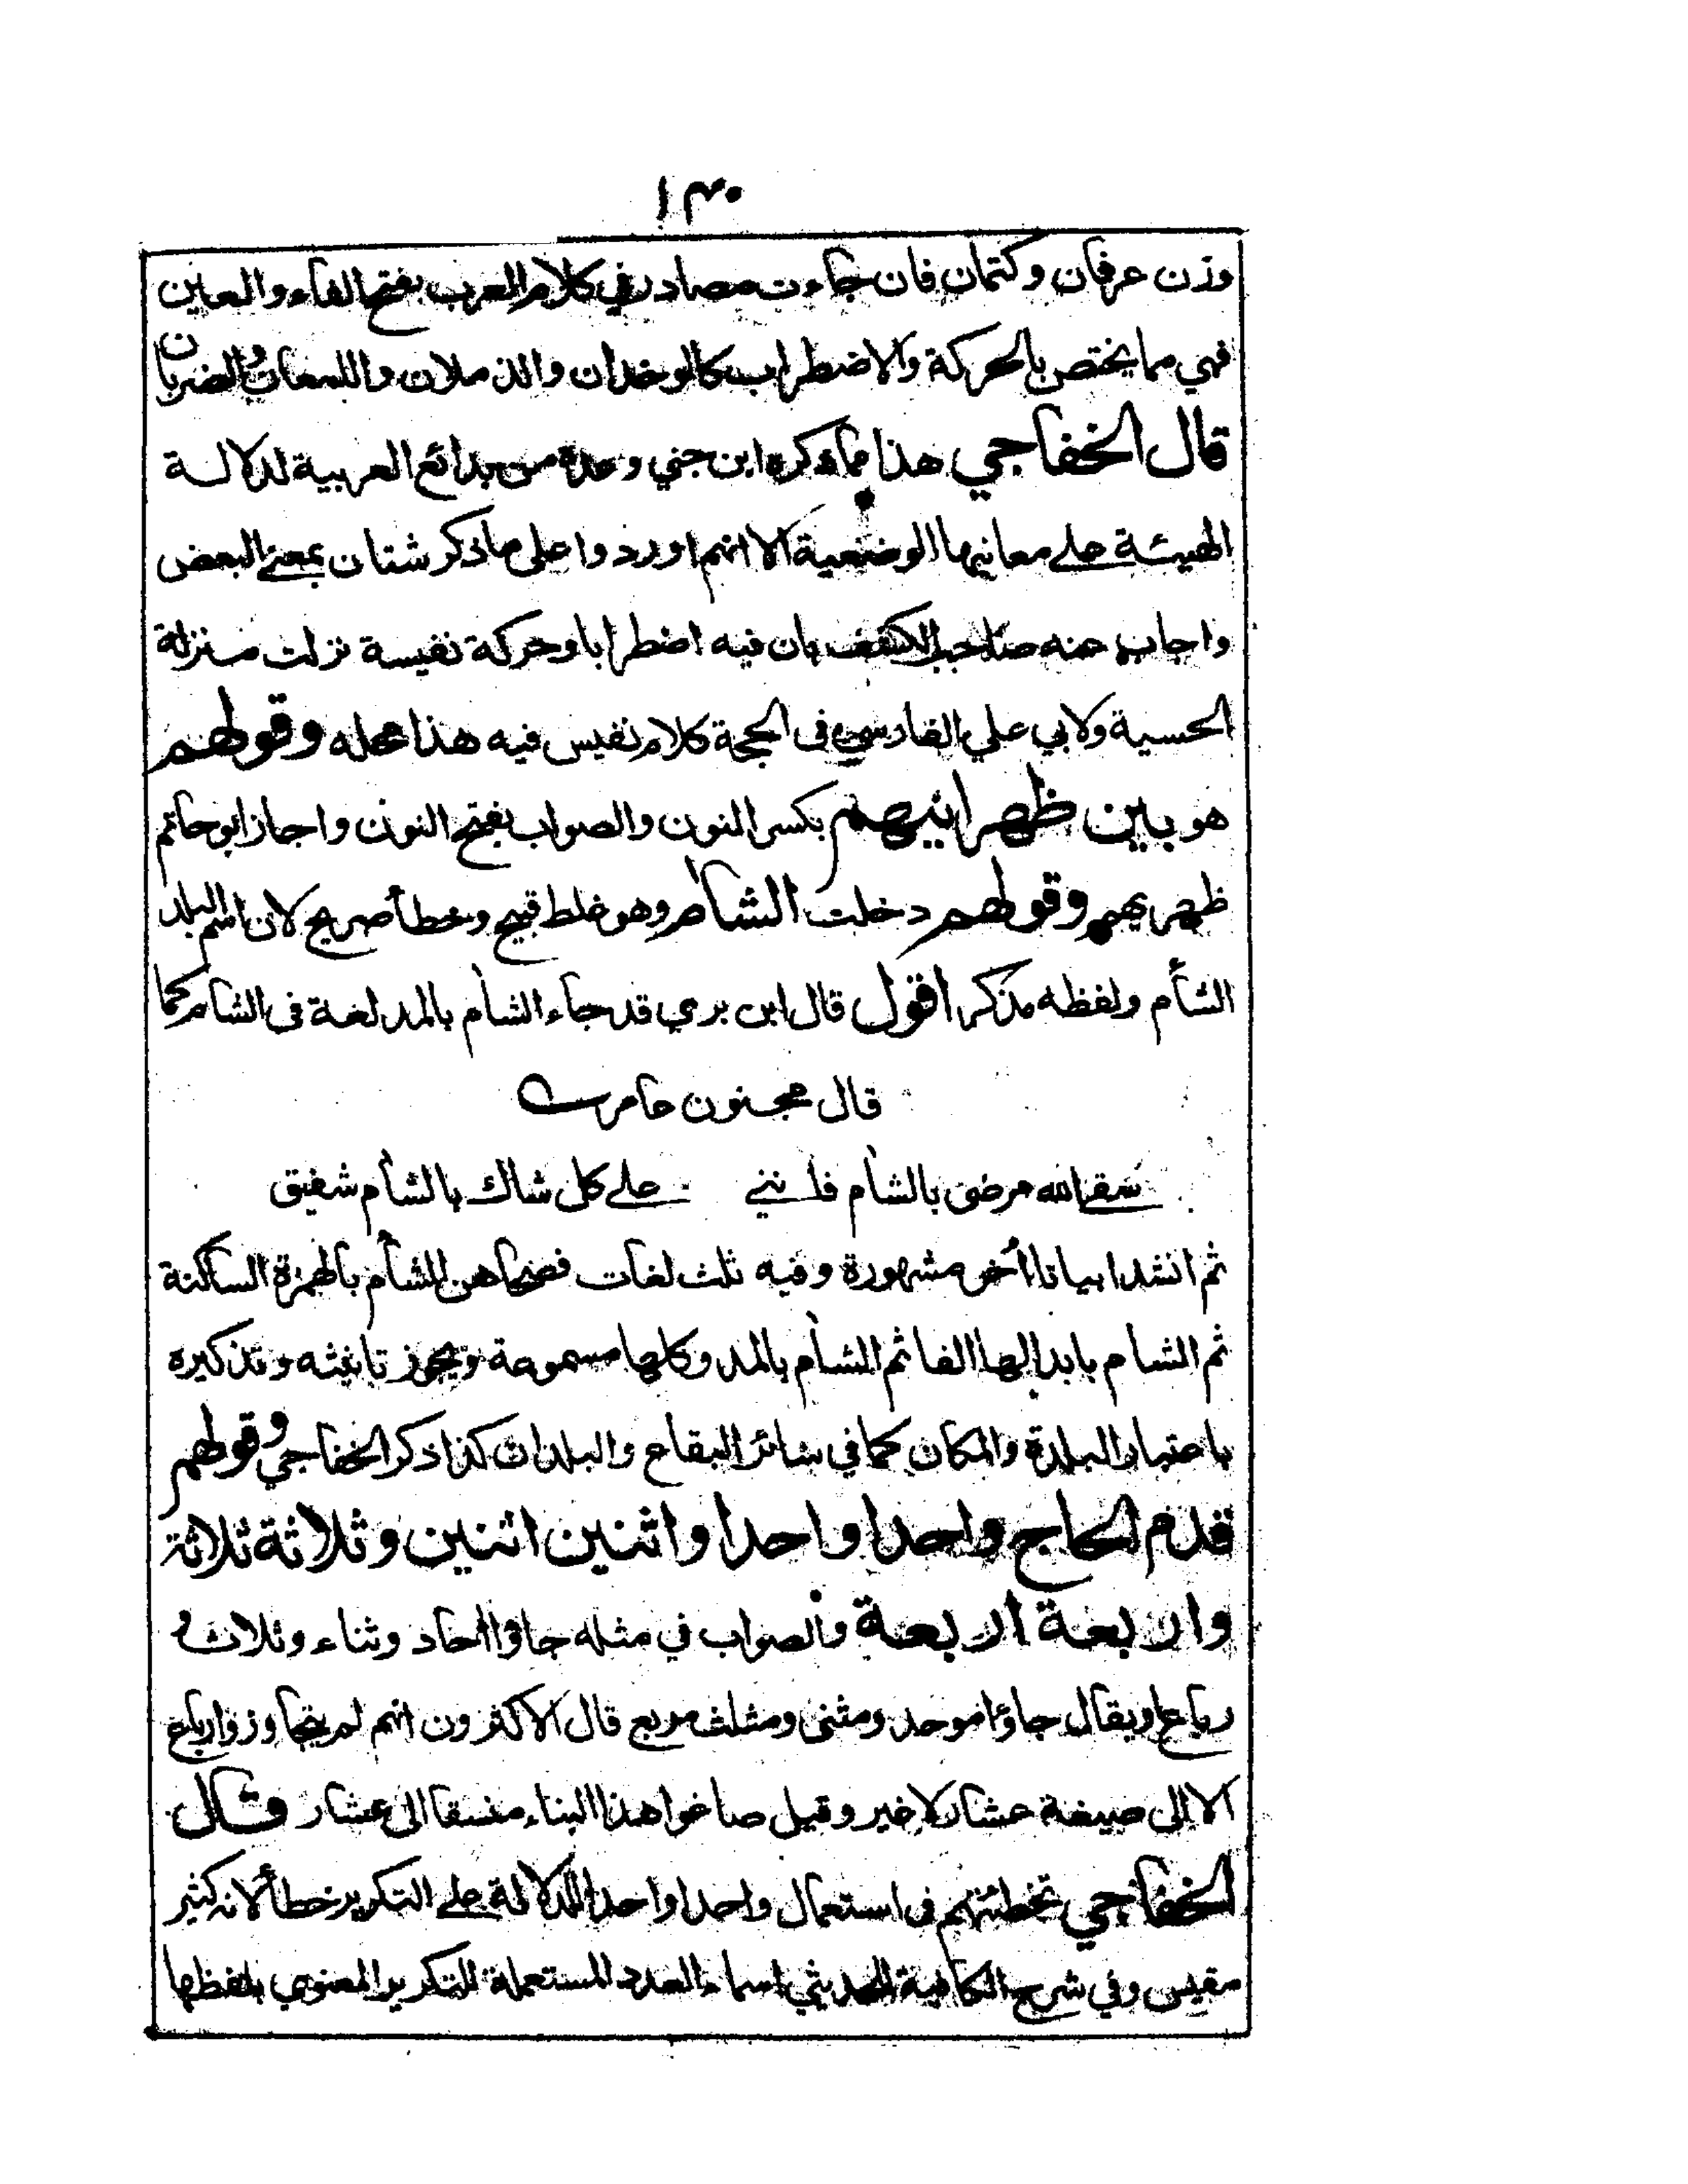 ١٣٠
وزن عرفان وكتمان فان جاءت مصادر في كلام العرب بفتح الفاء والعين
فهي مما يختص بالحركة والاضطراب كالوخدان والذملان واللمعان والضربان
قال الخفاجي هذا مما ذكره ابن جني وعده من بدائع العربية لدلالة
الهيئة على معانيها الوضعية الا انهم اوردوا على ماذكر شنان بمعنى البعض
واجاب عنه صاحب الكشف بان فيه اضطرابا وحركة نفيسة نزلت منزلة
الحسية ولابي علي الفارسي في الحجة كلام نفيس فيه هذا محله وقولهم
هو بين ظهرانيهم بكسر النون والصواب بفتح النون واجاز ابو حاتم
ظهريهم وقولهم دخلت الشآم وهو غلط قبيح وخطأ صريح لان اسم البلد
الشأم ولفظه مذكر اقول قال ابن بري قد جاء الشآم بالمد لغة في الشام كما
قال مجنون عامر
سقى الله مرضى بالشام فانني على كل شاك بالشأم شفيق
ثم انشد ابياتا أخر مشهورة وفيه ثلث لغات فصحاهن الشأم بالهمزة الساكنة
ثم الشام بابدالها الفا ثم الشآم بالمد وكلها مسموعة ويجوز تانيثه وتذكيره
باعتبار البلدة والمكان كما في سائر البقاع والبلدان كذا ذكر الخفاجي وقولهم
قدم الحاج واحدا واحدا واثنين اثنين وثلاثة ثلاثة
واربعة اربعة والصواب في مثله جاؤا احاد وثناء وثلاث و
رباع ويقال جاؤا موحد ومثنى ومثلث مربع قال الاكثرون انهم لم يتجاوزوا رباع
الا الى صيغة عشار لاغير وقيل صاغوا هذا البناء منسقا الى عشار وقال
الخفاجي تخطئتهم في استعمال واحدا واحدا للدلالة على التكرير خطأ لانه كثير
مقيس وفي شرح الكافية للحديثي اسماء العدد المستعملة للتكرير المعنوي بلفظها